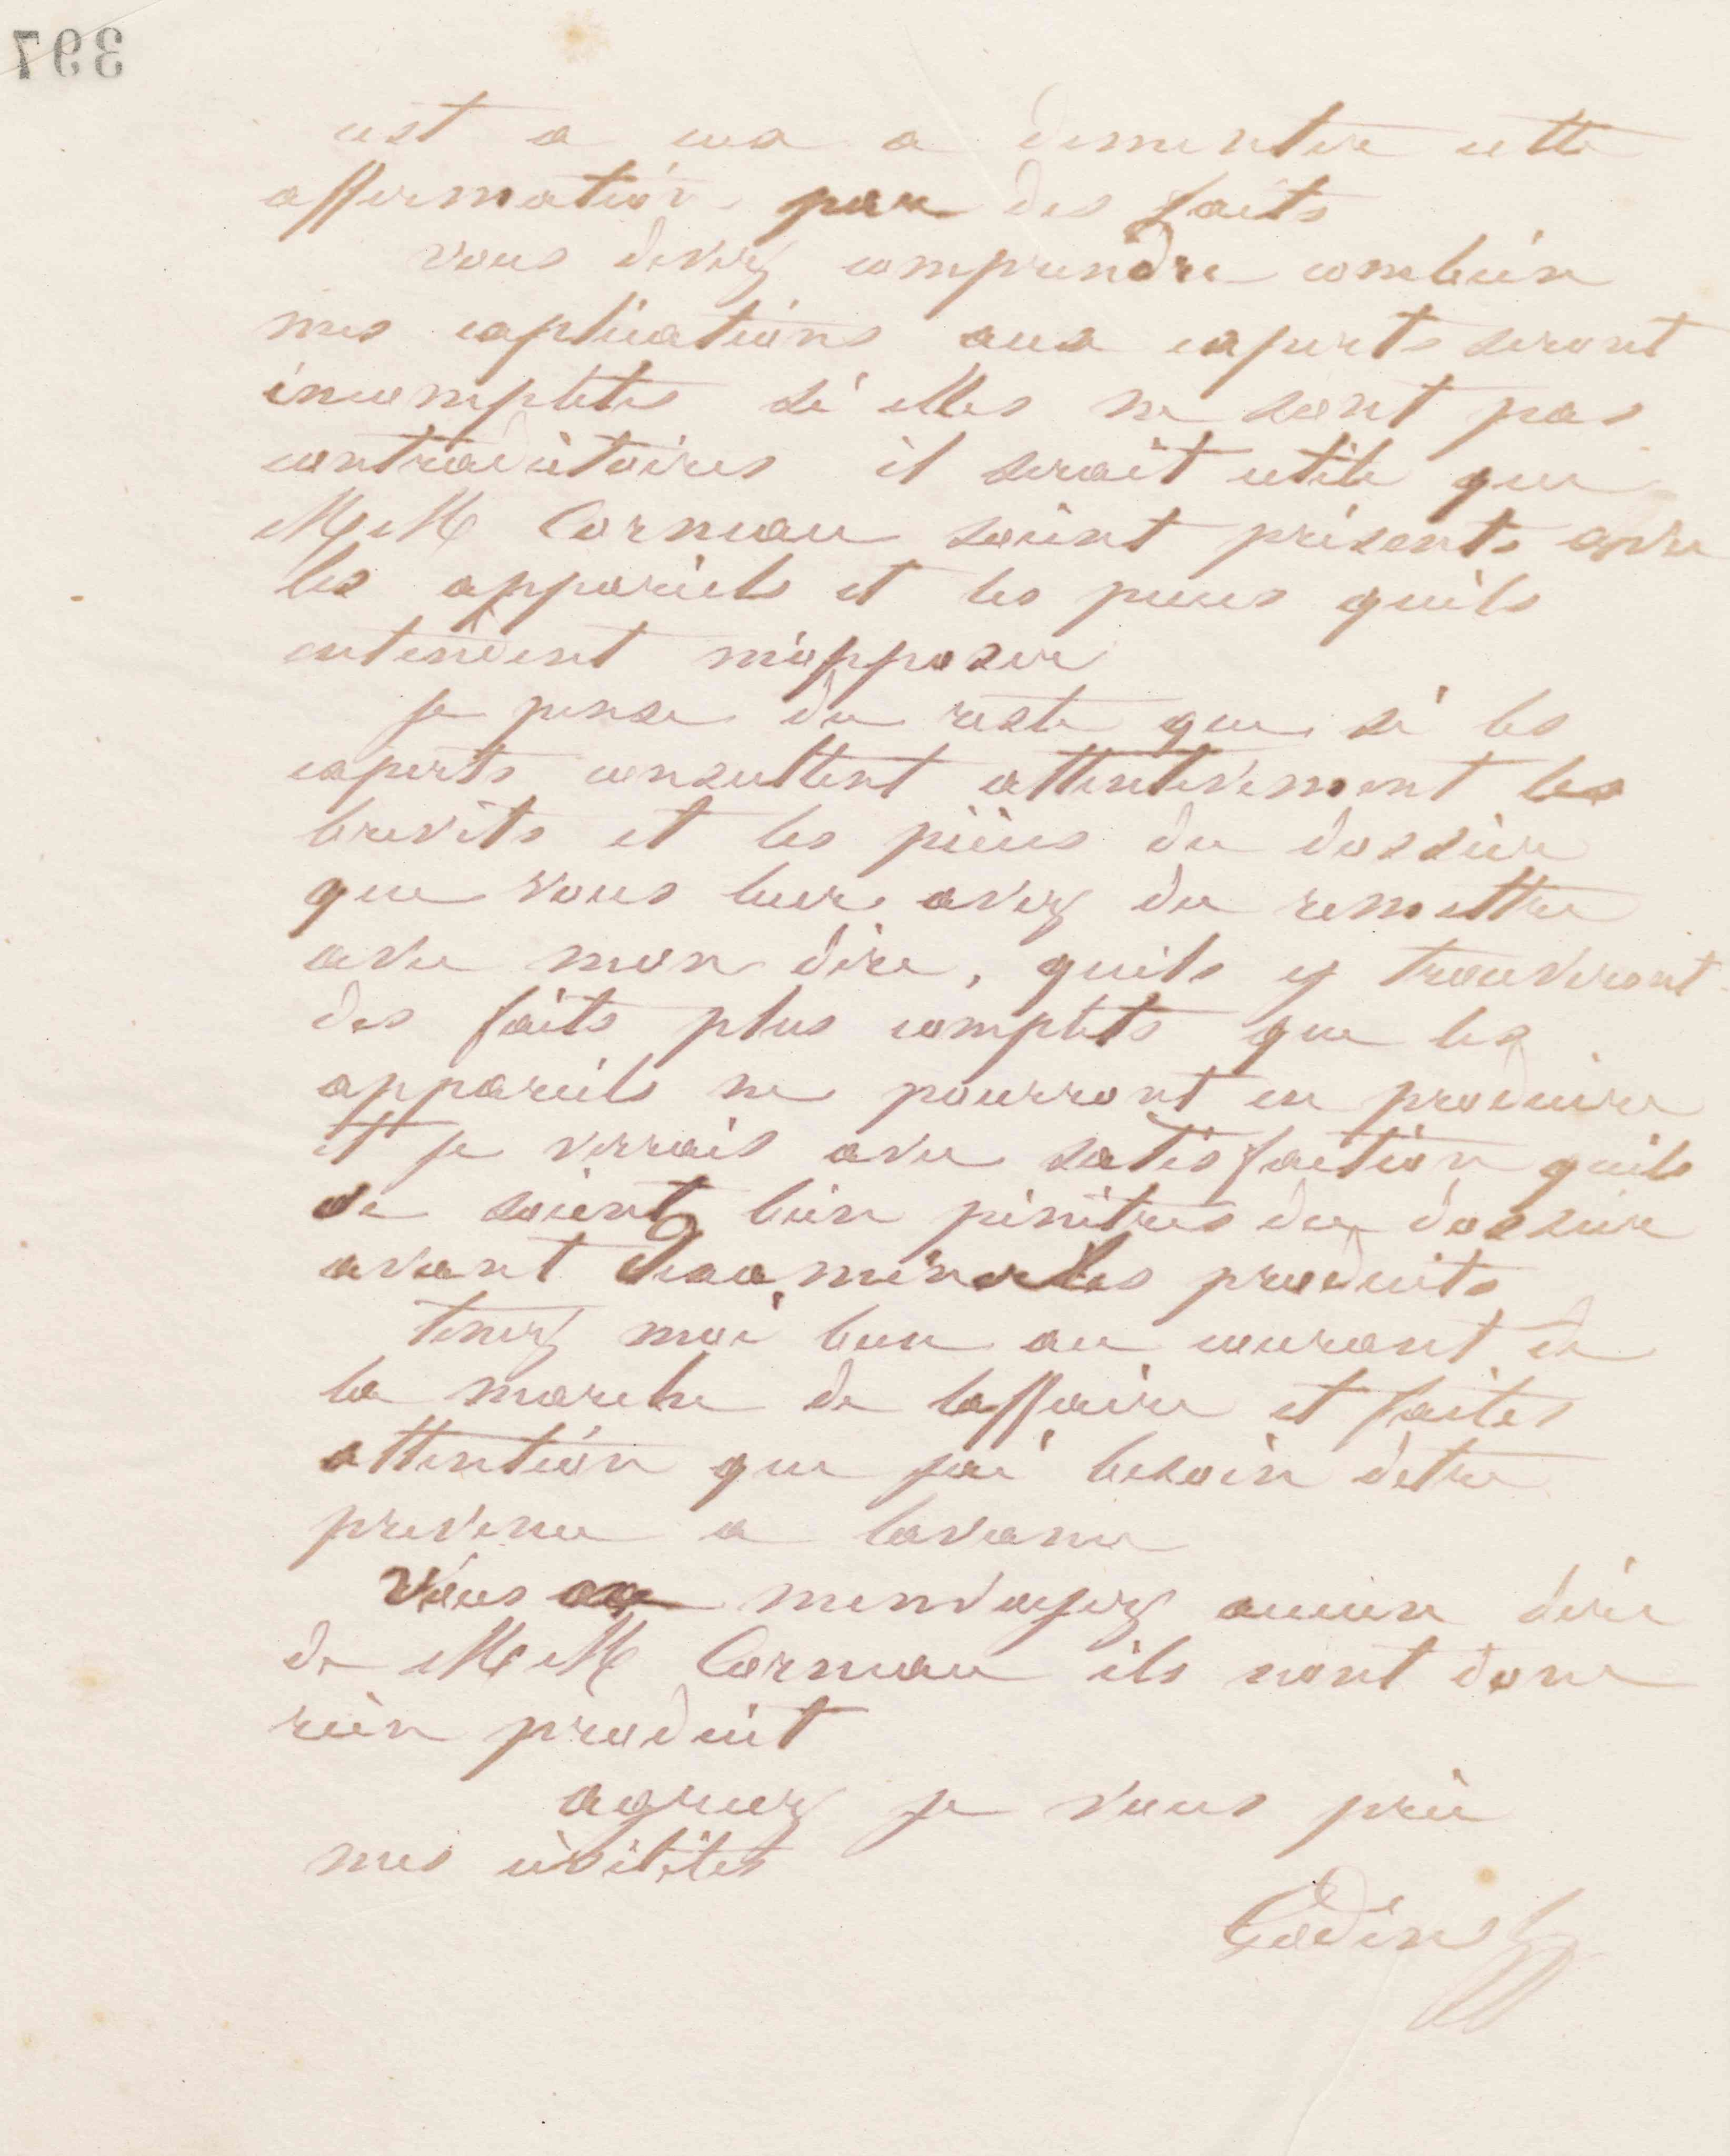 397
cest a eux a dementir cette
affirmation par des faits
vous devez comprendre combien
mes explications aux experts seront
incompletes si elles ne sont pas
contradictoires il serait utile que
MM Corneau soient présents avec
les appareils et les pieces quils
entendent m'opposer
je pense du reste que si les
experts consultent attentivement les
brevets et les pièces du dossier
que vous leur avez du remettre
avec mon dire, quils y trouveront
des faits plus complets que les
appareils ne pourront en produire
et je verrais avec satisfaction quils
se soient bien pénétrés du dossier
avant d'examiner les produits
tenez moi bien au courant de
la marche de laffaire et faites
attention que jai besoin d'etre
prevenu a lavance
Vous menvoyez aucun dire
de MM Corneau ils nont donc
rien produit
agreez je vous prie
mes civilités
Godin